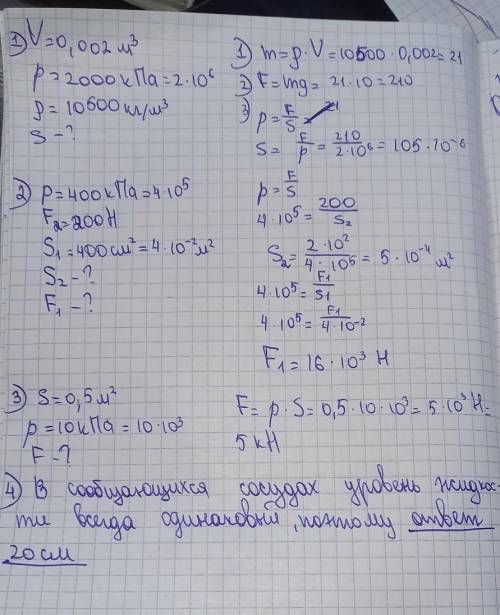 1) V=0,002 м³
p=2000 кПа=2·10⁶
ρ=10500 кг/м³
S-?
1) m=ρ·V=10500·0,002=21
2) F=mg=21·10=210
3) p=F/S
S=F/p=210/2·10⁶=105·10⁻⁶
2) p=400кПа=4·10⁵
F₂=200Н
S₁=400см²=4·10⁻²м²
S₂-?
F₁-?
p=F/S
4·10⁵=200/S₂
S₂=2·10²/4·10⁵=5·10⁻⁴м²
4·10⁵=F₁/S₁
4·10⁵=F₁/4·10⁻²
F₁=16·10³ Н
3) S=0,5м²
p=10кПа=10·10³
F-?
F=p·S=0,5·10·10³=5·10³Н=
5кН
4) В сообщающихся сосудах уровень жидкос-
ти всегда одинаковый, поэтому ответ
20см